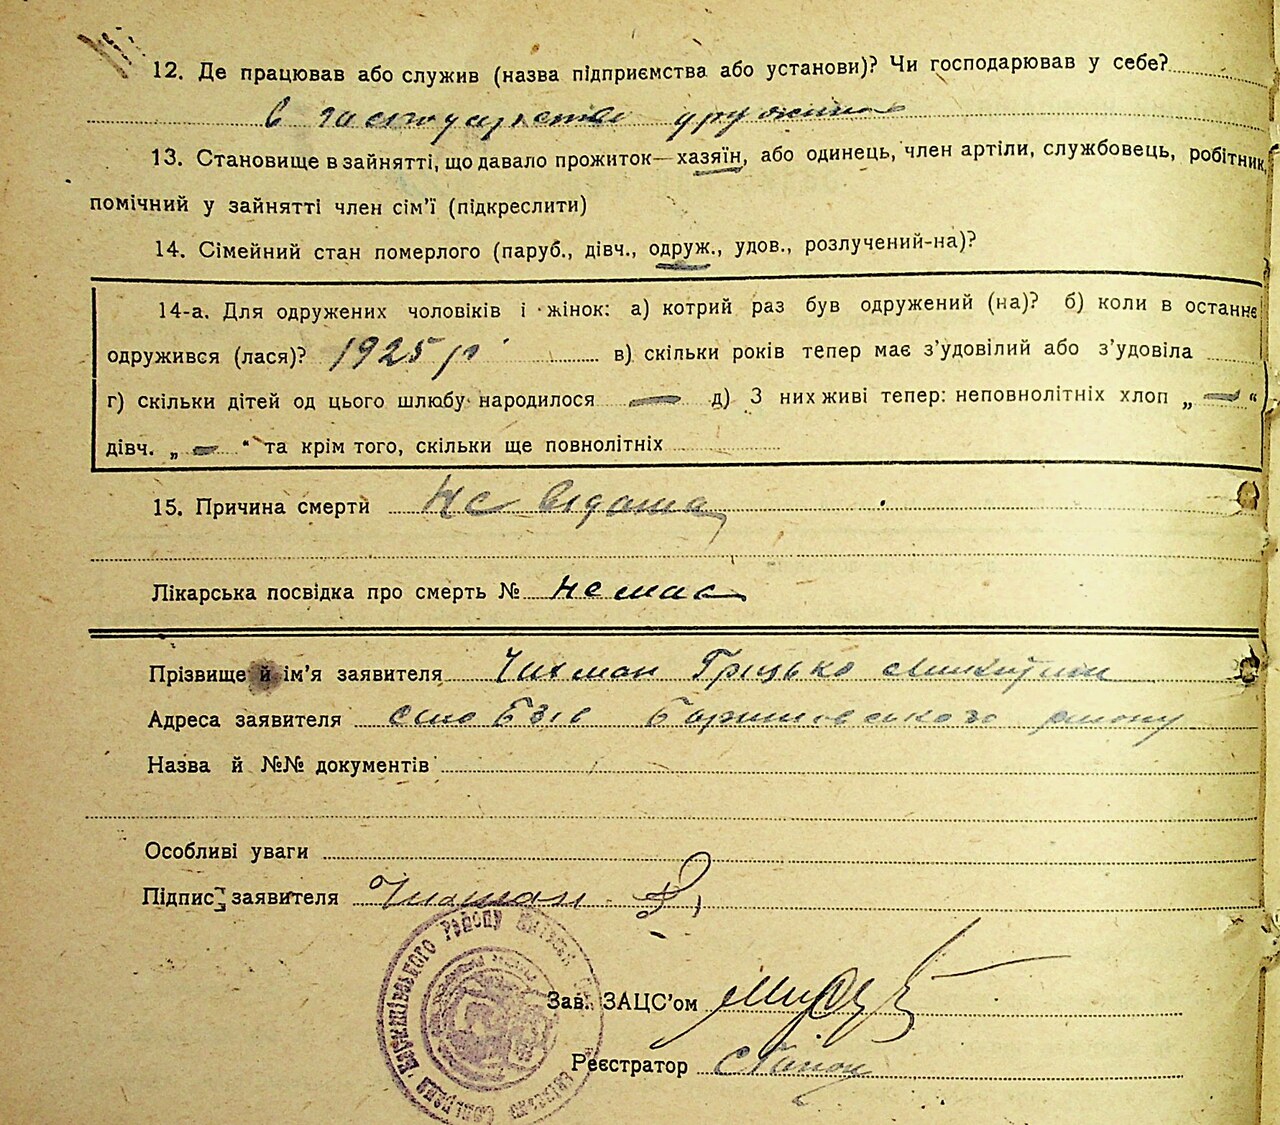 12. Де працював або служив (назва підприємства або установи)? Чи господарював у себе?
в господарстве дружина
13. Становище в зайнятті, що давало прожиток—хазяїн, або одинець, член артіли, службовець, робітник,
помічний у зайнятті член сім'ї (підкреслити)
14. Сімейний стан померлого (паруб., дівч., одруж., удов., розлучений-на)?
14-а. Для одружених чоловіків і жінок: а) котрий раз був одружений (на)? б) коли в останнє
одружився (лася)? 1925 р. в) скільки років тепер має з'удовілий або з'удовіла
г) скільки дітей од цього шлюбу народилося — д) З них живі тепер: неповнолітніх хлоп „ — “
дівч. „ — “ та крім того, скільки ще повнолітніх
15. Причина смерти Не відома
Лікарська посвідка про смерть № Немає
Прізвище й ім'я заявителя Чихман Грицько
Адреса заявителя село Бзів Баришовського району
Назва й №№ документів
Особливі уваги
Підпис заявителя
Зав. ЗАЦС'ом
Реєстратор